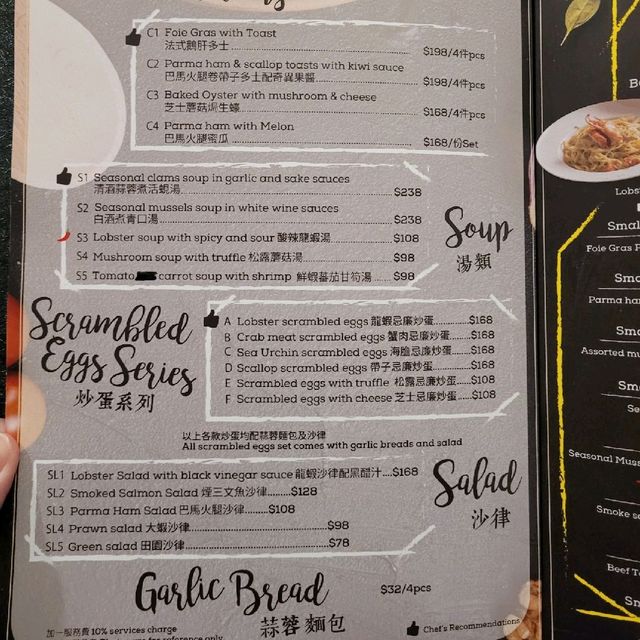 C1 Foie Gras with Toast
法式鵝肝多士 $198/4件pcs
C2 Parma ham & scallop toasts with kiwi sauce
巴馬火腿卷帶子多士配奇異果醬 $198/4件pcs
C3 Baked Oyster with mushroom & cheese
芝士蘑菇焗生蠔 $168/4件pcs
C4 Parma ham with Melon
巴馬火腿蜜瓜 $168/份Set
S1 Seasonal clams soup in garlic and sake sauces
清酒蒜蓉煮活蜆湯 $238
S2 Seasonal mussels soup in white wine sauces
白酒煮青口湯 $238
S3 Lobster soup with spicy and sour 酸辣龍蝦湯 $108
S4 Mushroom soup with truffle 松露蘑菇湯 $98
S5 Tomato carrot soup with shrimp 鮮蝦蕃茄甘筍湯 $98
Soup
湯類
Scrambled
Eggs Series
炒蛋系列
A Lobster scrambled eggs 龍蝦忌廉炒蛋 $168
B Crab meat scrambled eggs 蟹肉忌廉炒蛋 $168
C Sea Urchin scrambled eggs 海膽忌廉炒蛋 $168
D Scallop scrambled eggs 帶子忌廉炒蛋 $168
E Scrambled eggs with truffle 松露忌廉炒蛋 $108
F Scrambled eggs with cheese 芝士忌廉炒蛋 $108
以上各款炒蛋均配蒜蓉麵包及沙律
All scrambled eggs set comes with garlic breads and salad
SL1 Lobster Salad with black vinegar sauce 龍蝦沙律配黑醋汁 $168
SL2 Smoked Salmon Salad 煙三文魚沙律 $128
SL3 Parma Ham Salad 巴馬火腿沙律 $108
SL4 Prawn salad 大蝦沙律 $98
SL5 Green salad 田園沙律 $78
Salad
沙律
Garlic Bread $32/4pcs
蒜蓉麵包
加一服務費 10% services charge
for reference only
Chef's Recommendations
Lobs
Smal
Foie Gras P
Sma
Parma ha
Sma
Assorted mu
Sm
Se
Seasonal Muss
Smoke se
Beef To
Sm